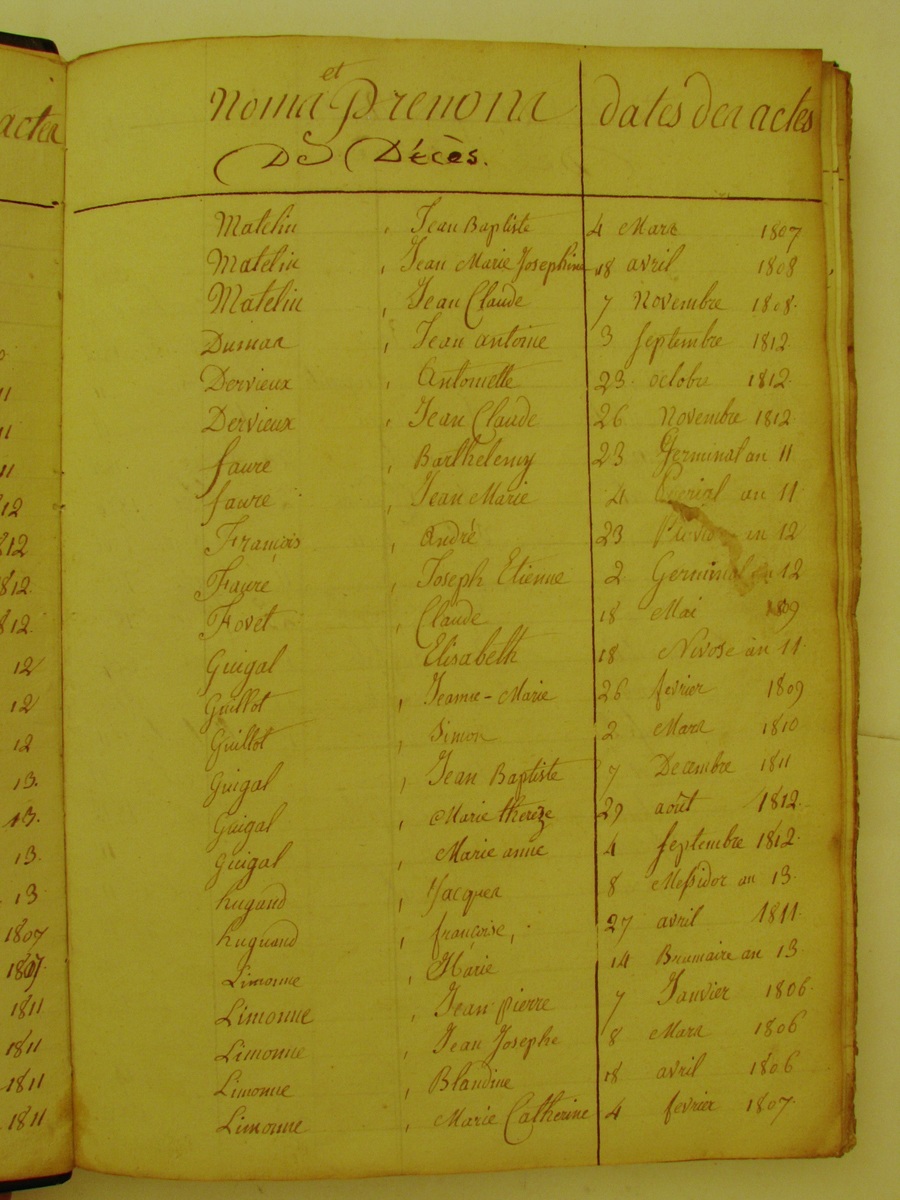 et
Noms Prenoms dates des actes
DS Décès.
Matelin , Jean Baptiste 4 Mars 1807
Matelin , Jean Marie Josephine 18 avril 1808
Matelin , Jean Claude 7 Novembre 1808.
Dumas , Jean antoine 3 Septembre 1812
Dervieux , Antoinette 23. octobre 1812.
Dervieux , Jean Claude 26 Novembre 1812.
faure , Barthelemy 23 Germinal an 11
faure , Jean Marie 4 an 11
François , André 23 an 12
Faure , Joseph Etienne 2 Germinal an 12
Fovet , Claude 18 Mai 1809
Guigal Elisabeth 18 Nivose an 11.
Guillot , Jeanne-Marie 26 fevrier 1809
Guillot , Simon 2 Mars 1810
Guigal , Jean Baptiste 7 Decembre 1811
Guigal , Marie thereze 29 août 1812.
Guigal , Marie anne 4 Septembre 1812.
hugand , Jacques 8 Messidor an 13.
huguand , françoise, 27 avril 1811.
Limonne , Marie 14 Brumaire an 13
Limonne , Jean pierre 7 Janvier 1806.
Limonne , Jean Josephe 8 Mars 1806
Limonne , Blandine 18 avril 1806
Limonne , Marie Catherine 4 fevrier 1807.
actes
11
11
11
12
12
12
12
13.
13.
13.
13
1807
1807.
1811
1811
1811
1811